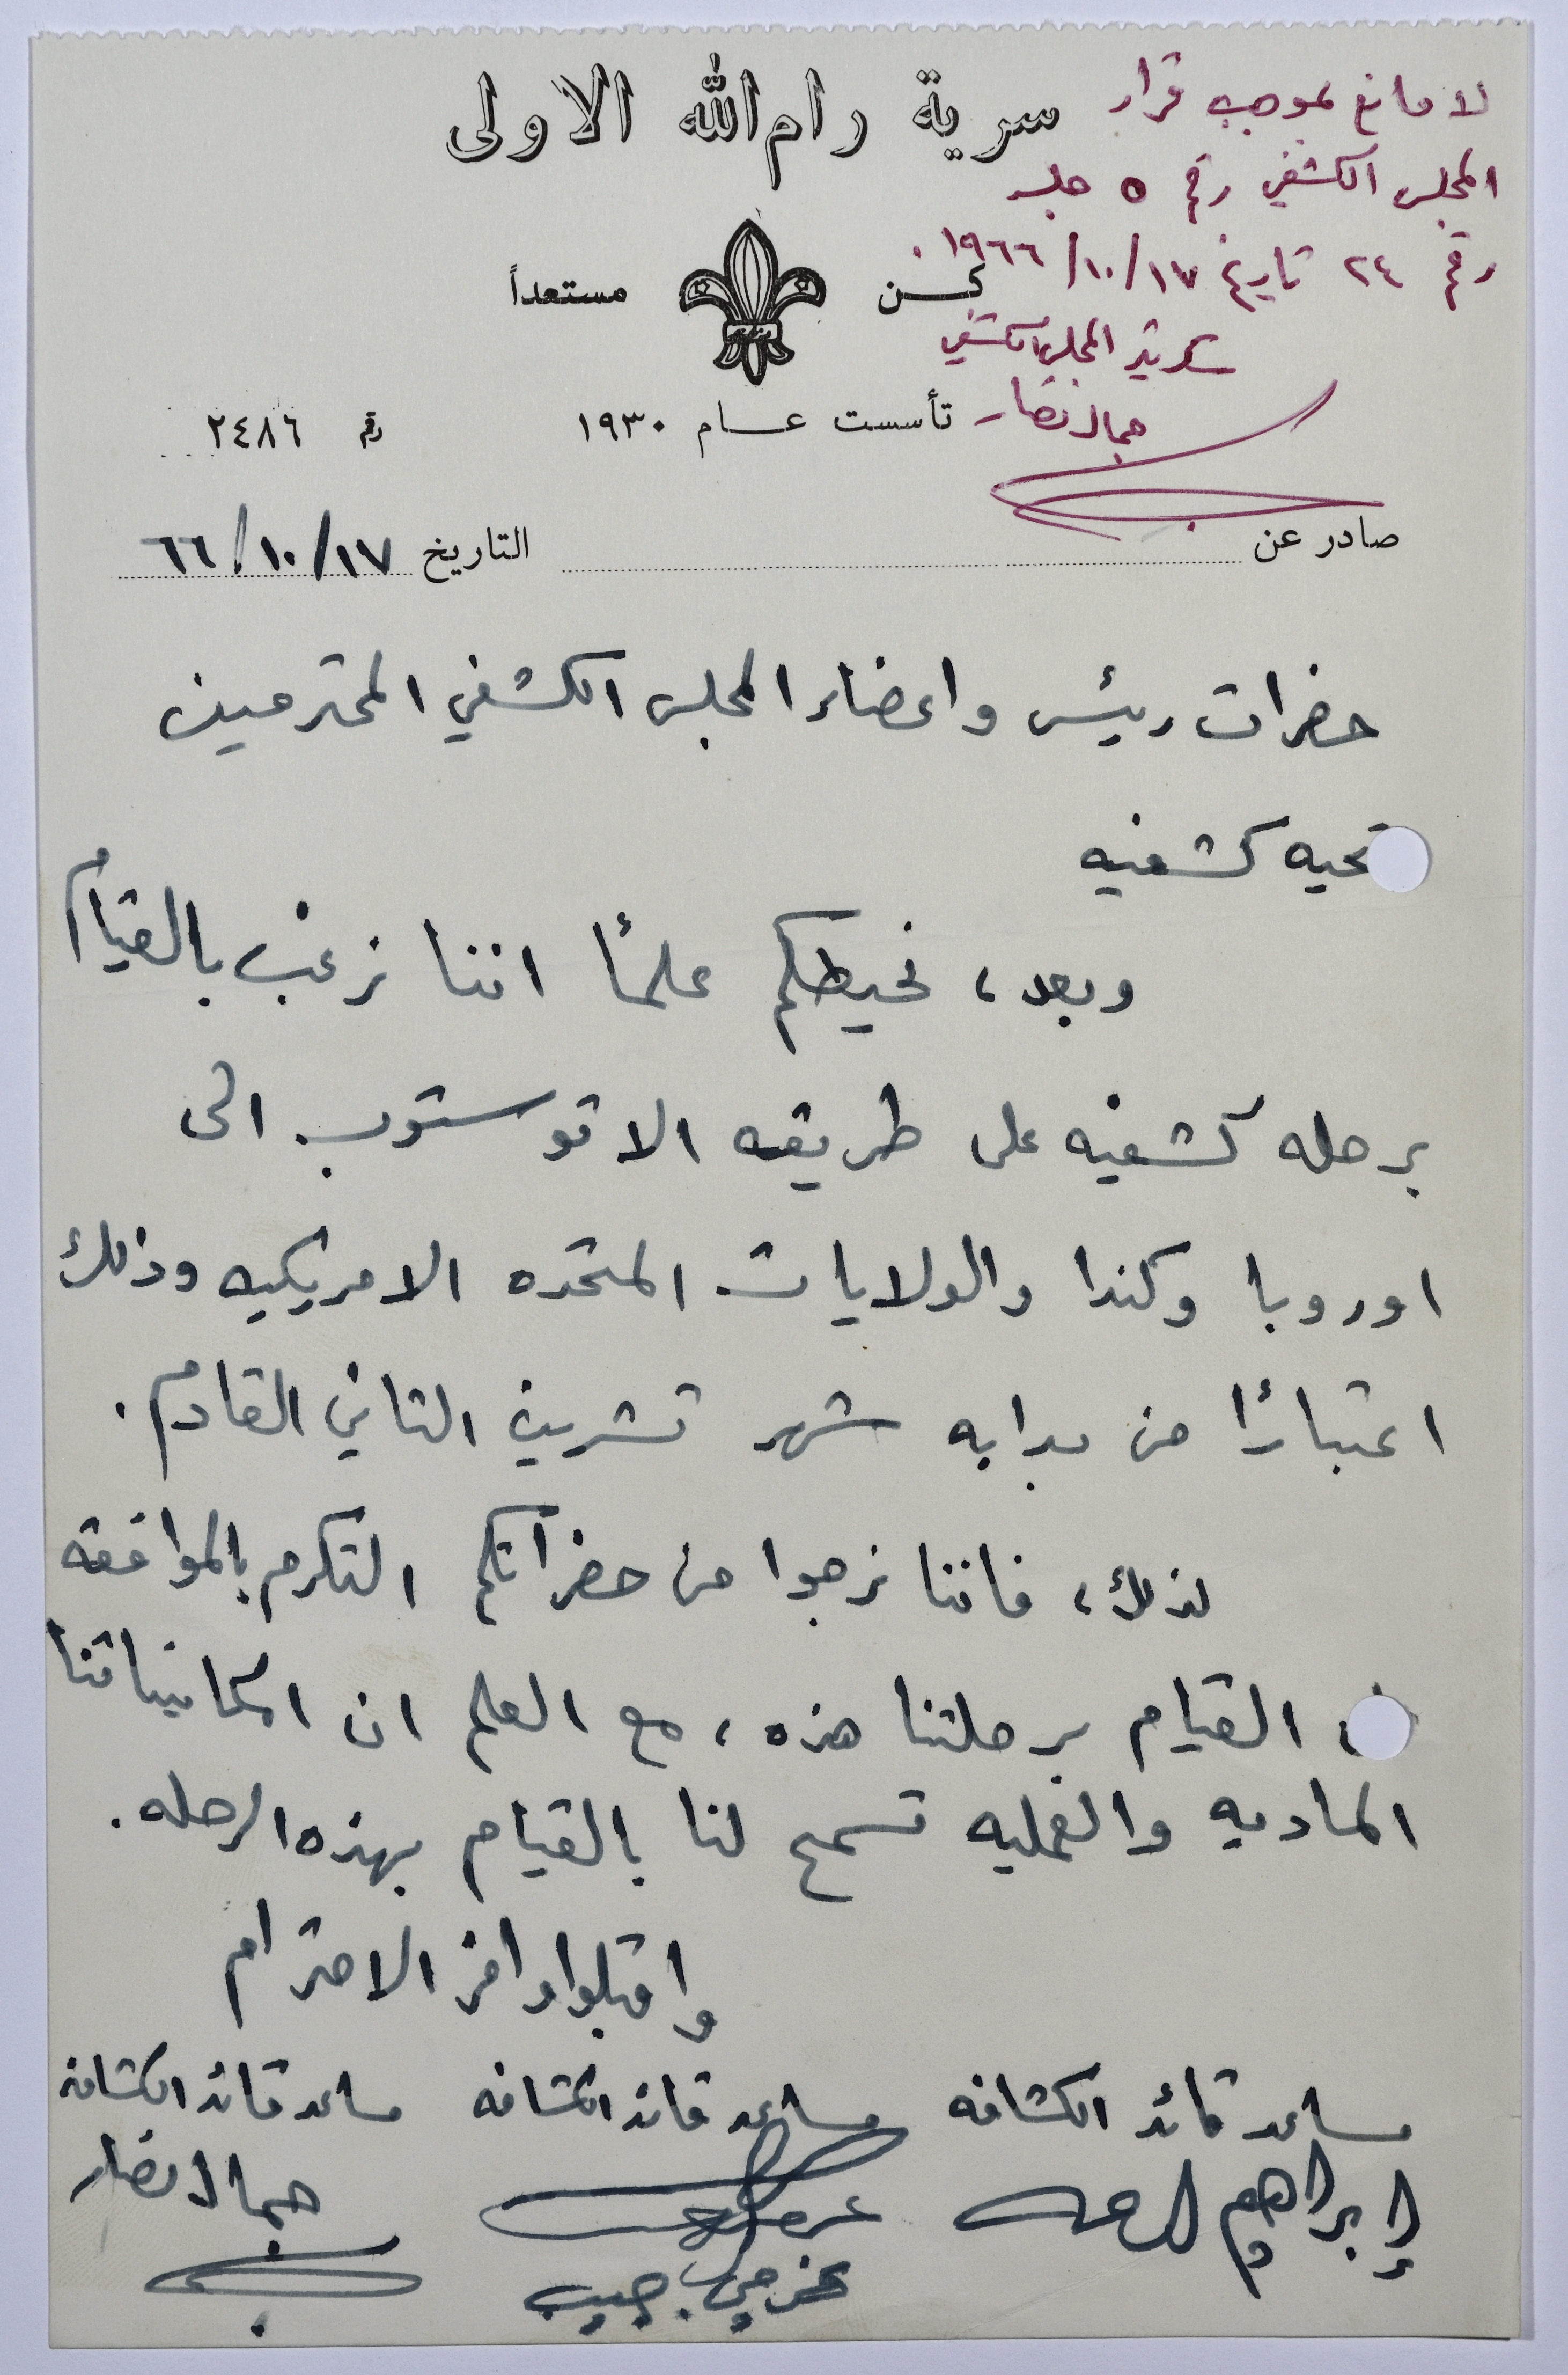 سرية رام الله الاولى
لا مانع بموجب قرار
المجلس الكشفي رقم ٥ جلسه
رقم ٢٤ تاريخ ١٧/١٠/١٩٦٦.
سكرتير المجلس الكشفي
جمال نصار
كن مستعداً
تأسست عام ١٩٣٠
رقم ٢٤٨٦
صادر عن
التاريخ ١٧/١٠/٦٦
حضرات رئيس واعضاء المجلس الكشفي المحترمين
تحيه كشفيه
وبعد، نحيطكم علمًا اننا نرغب بالقيام
برحله كشفيه على طريقه الاتوستوب الى
اوروبا وكندا والولايات المتحده الامريكيه وذلك
اعتبارًا من بدايه شهر تشرين الثاني القادم.
لذلك، فاننا نرجوا من حضراتكم التكرم بالموافقه
القيام برحلتنا هذه، مع العلم ان امكانياتنا
الماديه والعمليه تسمح لنا بالقيام بهذه الرحله.
واقبلوا وافر الاحترام
مساعد قائد الكشافه
مساعد قائد الكشافه
مساعد قائد الكشافه
إبراهيم
جمال نصار